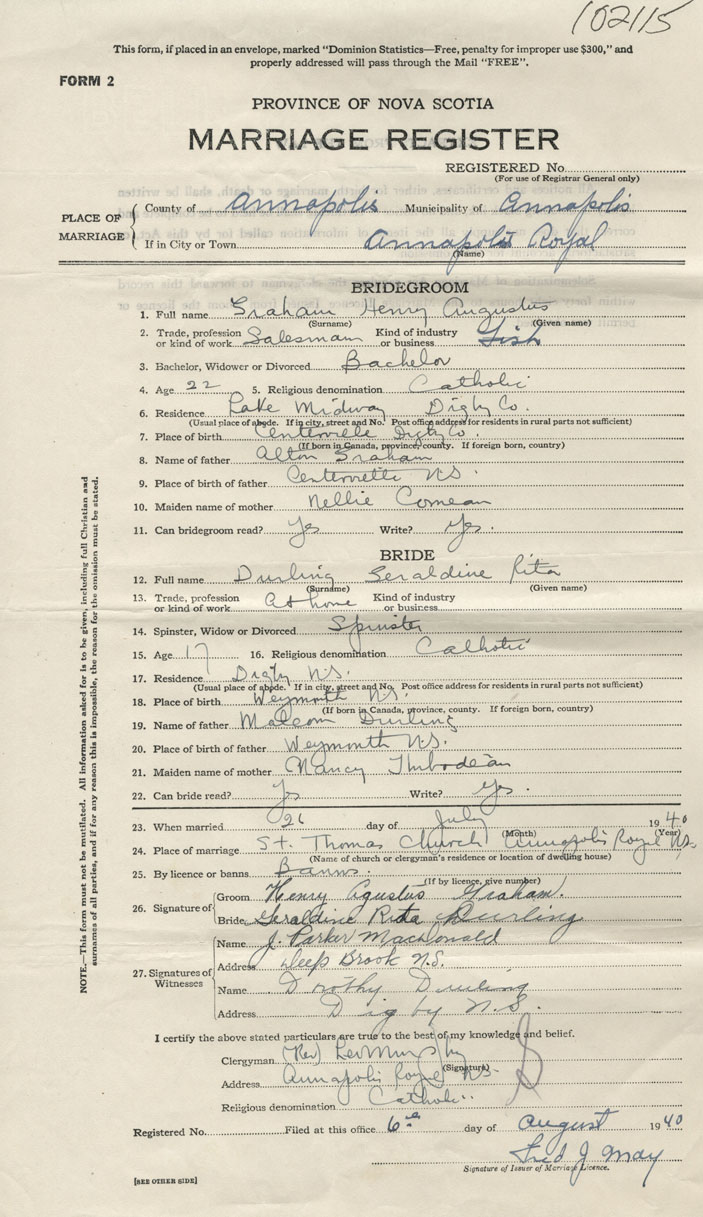 102115
This form, if placed in an envelope, marked "Dominion Statistics—Free, penalty for improper use $300," and
properly addressed will pass through the Mail "FREE".
FORM 2
PROVINCE OF NOVA SCOTIA
MARRIAGE REGISTER
REGISTERED No.
(For use of Registrar General only)
PLACE OF MARRIAGE
County of Annapolis Municipality of Annapolis
If in City or Town Annapolis Royal
(Name)
BRIDEGROOM
1. Full name Graham Henry Augustus
(Surname) (Given name)
2. Trade, profession or kind of work Salesman Kind of industry or business Fish
3. Bachelor, Widower or Divorced Bachelor
4. Age 22 5. Religious denomination Catholic
6. Residence Lake Midway Digby Co.
(Usual place of abode. If in city, street and No. Post office address for residents in rural parts not sufficient)
7. Place of birth Centerville Digby Co.
(If born in Canada, province, county. If foreign born, country)
8. Name of father Alton Graham
9. Place of birth of father Centerville N.S.
10. Maiden name of mother Nellie Comeau
11. Can bridegroom read? Yes Write? Yes.
BRIDE
12. Full name Durling Geraldine Rita
(Surname) (Given name)
13. Trade, profession or kind of work At home Kind of industry or business
14. Spinster, Widow or Divorced Spinster
15. Age 17 16. Religious denomination Catholic
17. Residence Digby N.S.
(Usual place of abode. If in city, street and No. Post office address for residents in rural parts not sufficient)
18. Place of birth Weymouth N.S.
(If born in Canada, province, county. If foreign born, country)
19. Name of father Malcom Durling
20. Place of birth of father Weymouth N.S.
21. Maiden name of mother Nancy Thibodeau
22. Can bride read? Yes Write? Yes.
23. When married 26 day of July 1940
(Month) (Year)
24. Place of marriage St. Thomas Church Annapolis Royal N.S.
(Name of church or clergyman's residence or location of dwelling house)
25. By licence or banns Banns.
(If by licence, give number)
26. Signature of
Groom Henry Agustus Graham.
Bride Geraldine Rita Durling
27. Signatures of Witnesses
Name J. Parker Macdonald
Address Deep Brook N.S.
Name Dorothy Durling
Address Digby N.S.
I certify the above stated particulars are true to the best of my knowledge and belief.
Clergyman (Rev)
(Signature)
Address Annapolis Royal N.S.
Religious denomination Catholic
Registered No. Filed at this office 6th day of August 1940
Fred J May
Signature of Issuer of Marriage Licence.
[SEE OTHER SIDE]
NOTE.—This form must not be mutilated. All information asked for is to be given, including full Christian and
surnames of all parties, and if for any reason this is impossible, the reason for the omission must be stated.